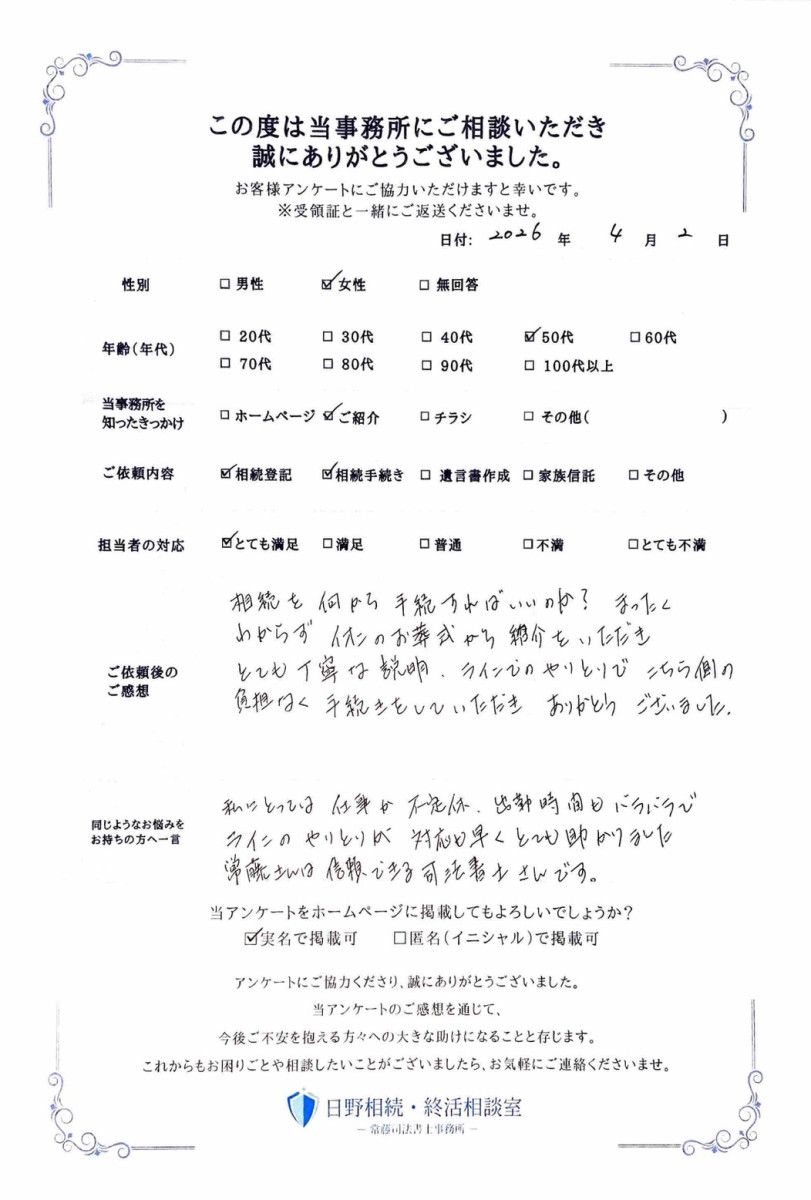 この度は当事務所にご相談いただき
誠にありがとうございました。
お客様アンケートにご協力いただけますと幸いです。
※受領証と一緒にご返送くださいませ。
日付: 2026 年 4 月 2 日
性別 □ 男性 ☑ 女性 □ 無回答
年齢(年代)
□ 20代 □ 30代 □ 40代 ☑ 50代 □ 60代
□ 70代 □ 80代 □ 90代 □ 100代以上
当事務所を
知ったきっかけ
□ ホームページ ☑ ご紹介 □ チラシ □ その他( )
ご依頼内容 ☑ 相続登記 ☑ 相続手続き □ 遺言書作成 □ 家族信託 □ その他
担当者の対応 ☑ とても満足 □ 満足 □ 普通 □ 不満 □ とても不満
ご依頼後の
ご感想
相続を 何から 手続すればいいのか? まったく
わからず イオンのお葬式から 紹介をいただき
とても丁寧な説明、ラインでのやりとりで こちら側の
負担なく 手続きをしていただき ありがとう ございました。
同じようなお悩みを
お持ちの方へ一言
私にとっては 仕事が 不定休、出勤時間もバラバラで
ラインの やりとりが 対応も早く とても助かりました
常藤さんは 信頼できる 司法書士さんです。
当アンケートをホームページに掲載してもよろしいでしょうか?
☑実名で掲載可 □匿名(イニシャル)で掲載可
アンケートにご協力くださり、誠にありがとうございました。
当アンケートのご感想を通じて、
今後ご不安を抱える方々への大きな助けになることと存じます。
これからもお困りごとや相談したいことがございましたら、お気軽にご連絡くださいませ。
日野相続・終活相談室
― 常藤司法書士事務所 ―